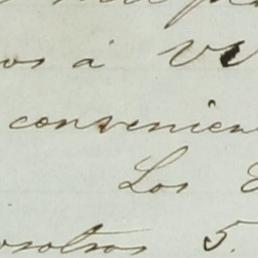 os á VV
convenien
Los
osotros 5.